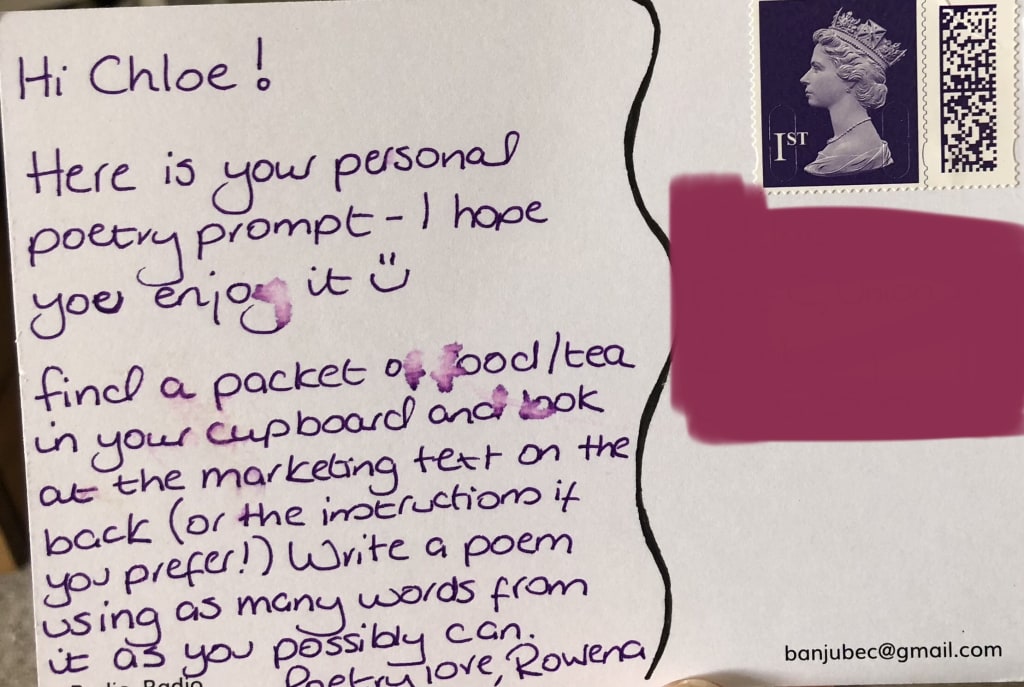 Hi Chloe!
Here is your personal
poetry prompt - I hope
you enjoy it
find a packet of food/tea
in your cupboard and look
at the marketing text on the
back (or the instructions if
you prefer!) Write a poem
using as many words from
it as you possibly can.
Poetry love, Rowena
Radio
1ST
banjubec@gmail.com